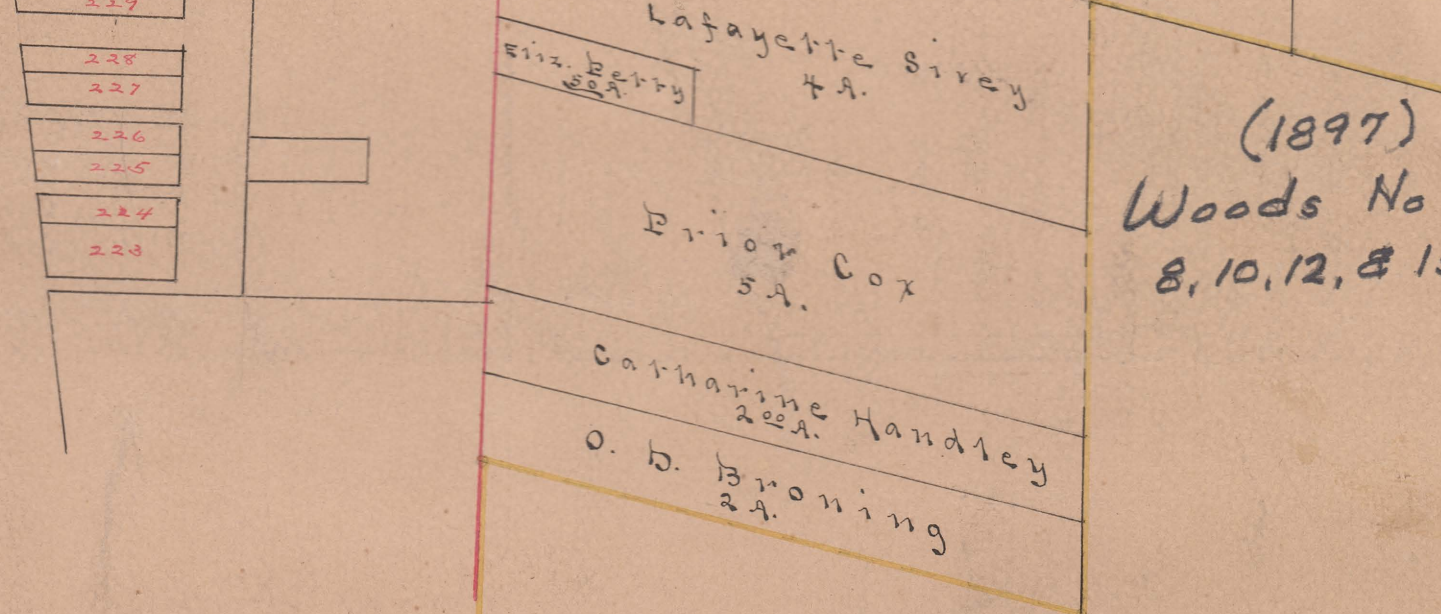 229
228
227
226
225
224
223
Lafayette Sivey
4 A.
Eliz. Perry
50 A.
Prior Cox
5 A.
Catharine Handley
2 00 A.
O. D. Broning
2 A.
(1897)
Woods No
8, 10, 12, &